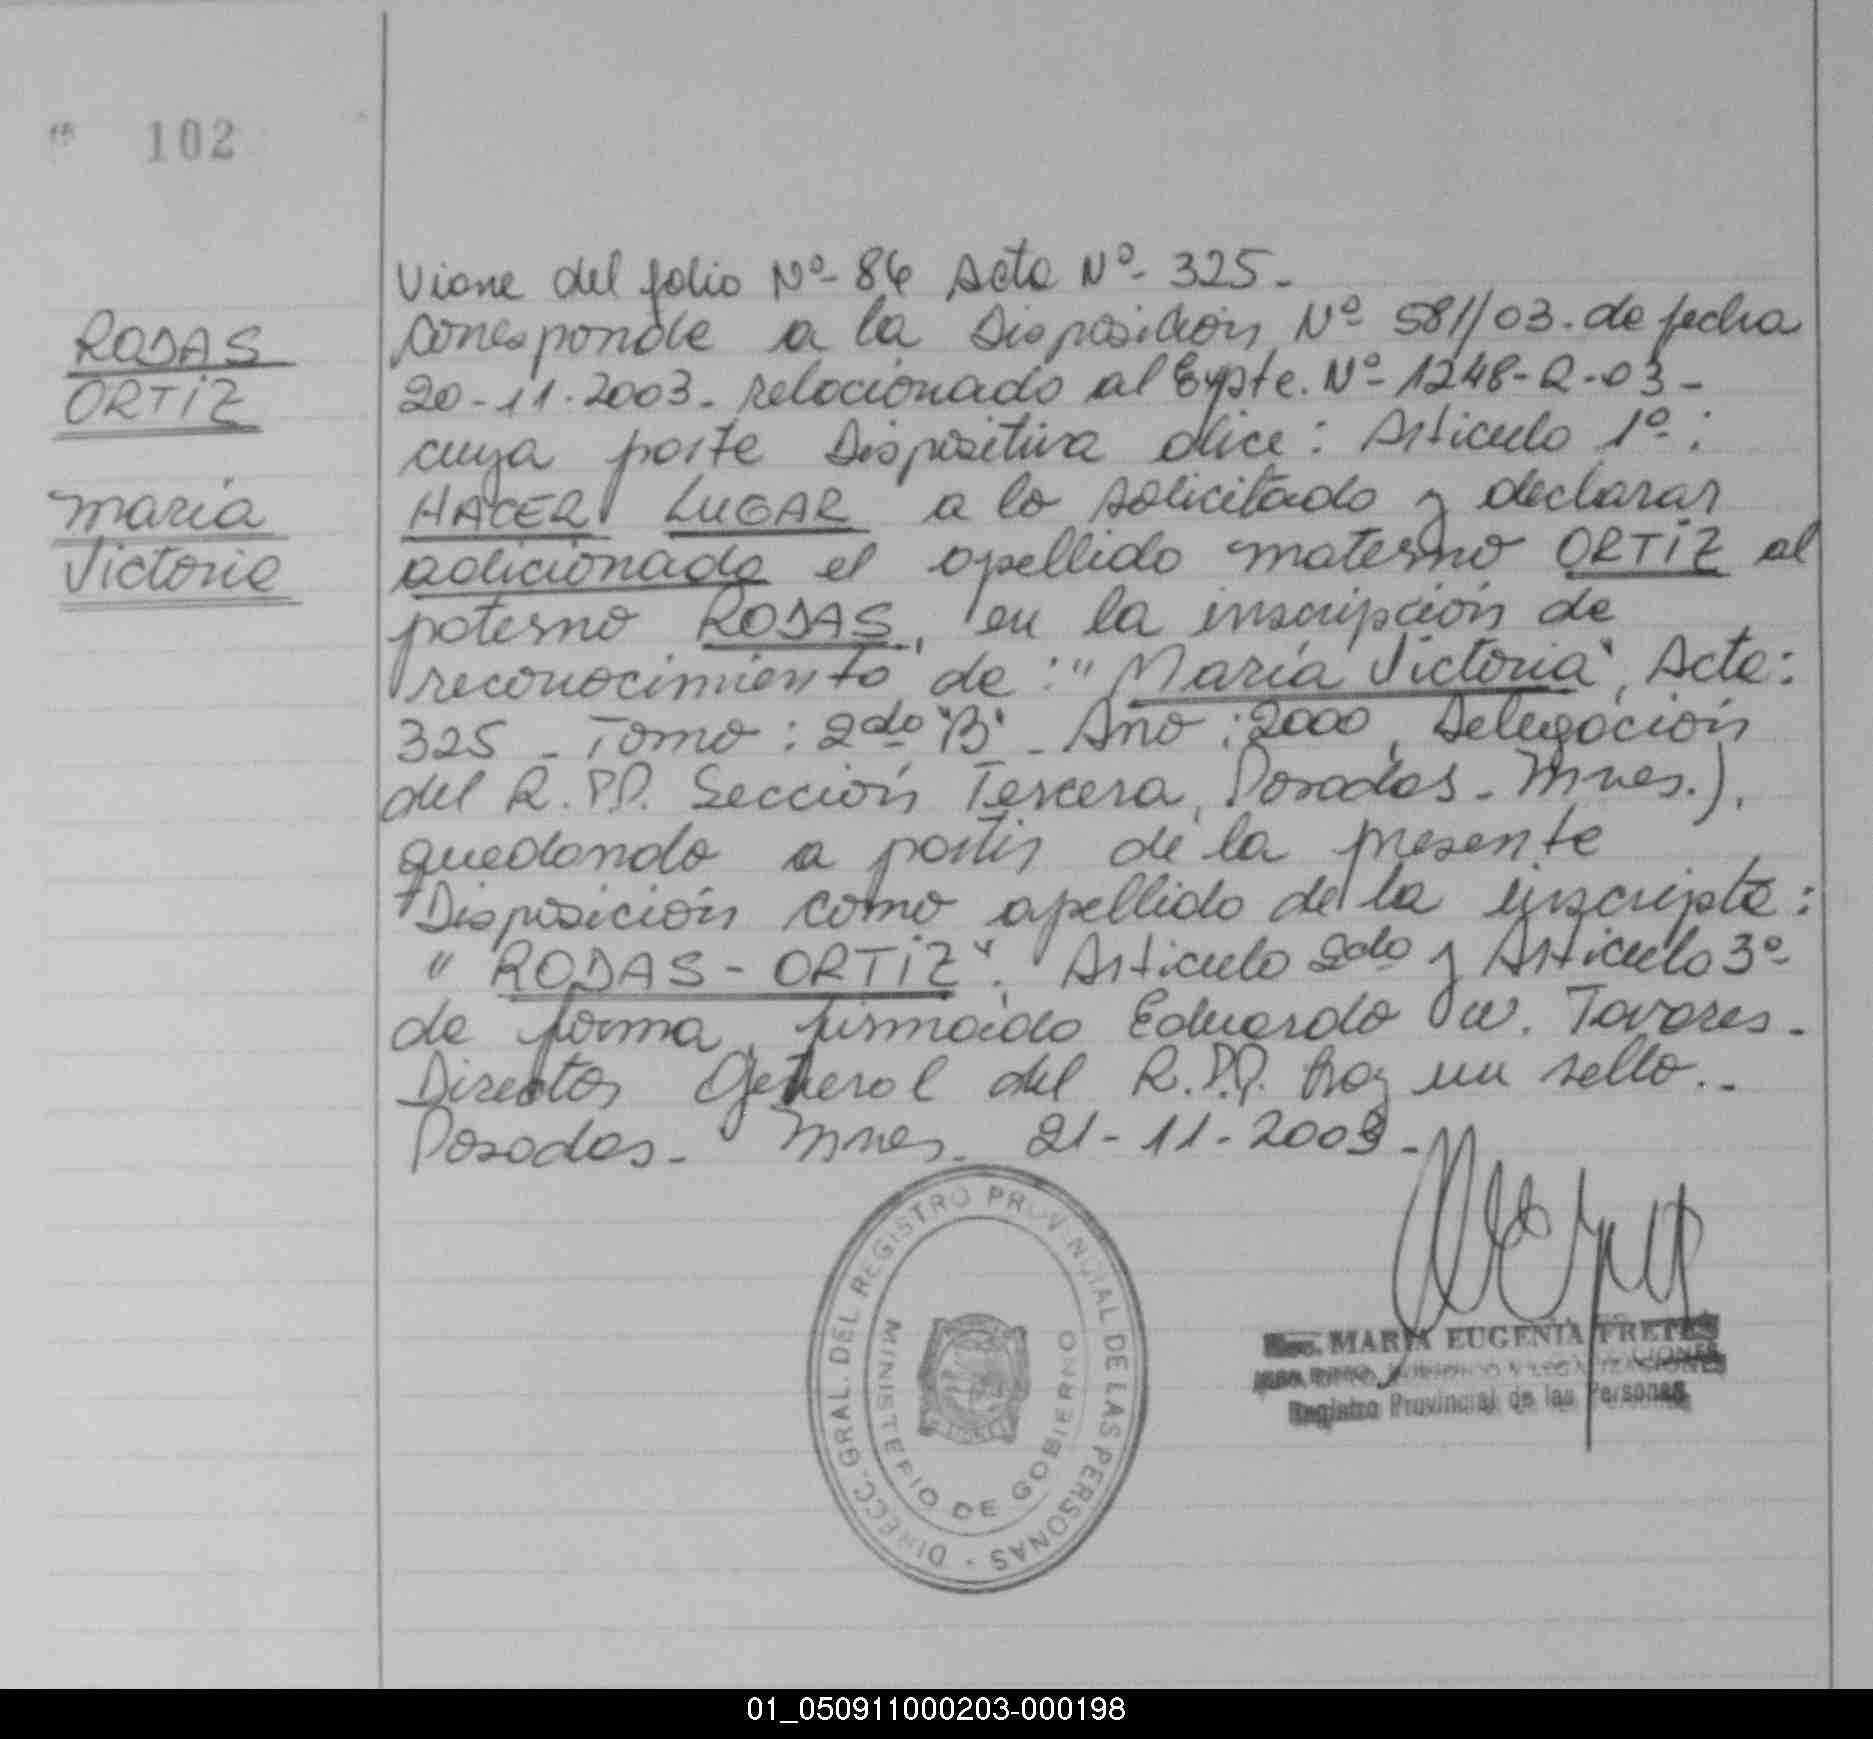 102
RODAS
ORTIZ
María
Victoria
Viene del folio Nº- 86 Acta Nº- 325.-
Corresponde a la Disposición Nº 581/03. de fecha
20-11-2003- relacionado al Expte. Nº- 1248-R-03-
cuya parte Dispositiva dice: Artículo 1º-:
HACER LUGAR a lo solicitado y declarar
adicionado el apellido materno ORTIZ al
paterno RODAS, en la inscripción de
reconocimiento de: "María Victoria", Acta:
325 - Tomo: 2do "B" - Año: 2000, Delegación
del R.P.P. Sección Tercera, Posadas - Mnes.),
quedando a partir de la presente
Disposición como apellido de la inscripta:
" RODAS - ORTIZ". Artículo 2do y Artículo 3º-
de forma, firmado Eduardo W. Tavares-
Director General del R.P.P. hay un sello.-
Posadas- Mnes. 21-11-2003-
DIRECC. GRAL. DEL REGISTRO PROVINCIAL DE LAS PERSONAS -
MINISTERIO DE GOBIERNO
MARIA EUGENIA FRETES
Registro Provincial de las Personas
01_050911000203-000198